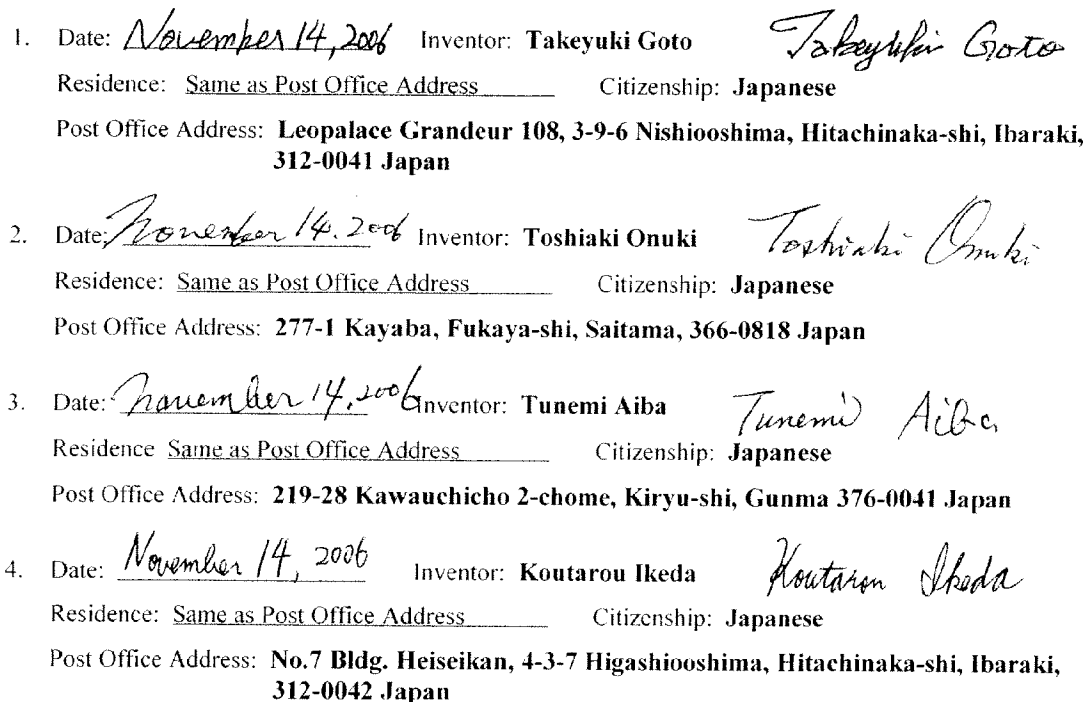 1. Date: November 14, 2006 Inventor: Takeyuki Goto Takeyuki Goto
Residence: Same as Post Office Address Citizenship: Japanese
Post Office Address: Leopalace Grandeur 108, 3-9-6 Nishiooshima, Hitachinaka-shi, Ibaraki,
312-0041 Japan
2. Date: November 14. 2006 Inventor: Toshiaki Onuki Toshiaki Onuki
Residence: Same as Post Office Address Citizenship: Japanese
Post Office Address: 277-1 Kayaba, Fukaya-shi, Saitama, 366-0818 Japan
3. Date: November 14, 2006 Inventor: Tunemi Aiba Tunemi Aiba
Residence Same as Post Office Address Citizenship: Japanese
Post Office Address: 219-28 Kawauchicho 2-chome, Kiryu-shi, Gunma 376-0041 Japan
4. Date: November 14, 2006 Inventor: Koutarou Ikeda Koutarou Ikeda
Residence: Same as Post Office Address Citizenship: Japanese
Post Office Address: No.7 Bldg. Heiseikan, 4-3-7 Higashiooshima, Hitachinaka-shi, Ibaraki,
312-0042 Japan